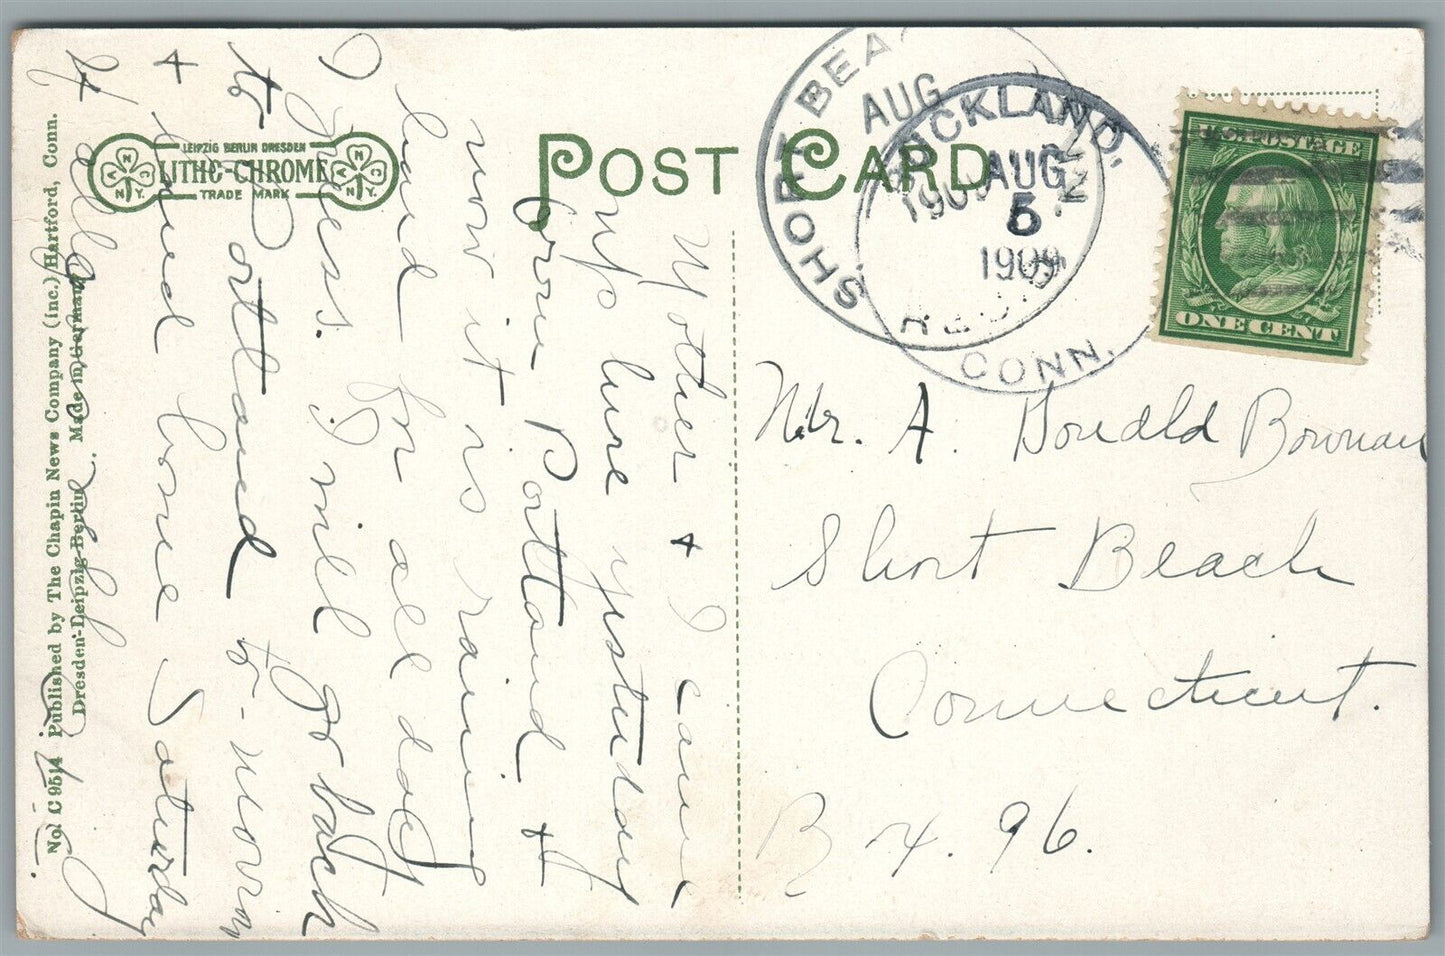 No. C 9514 Published by The Chapin News Company (Inc.) Hartford, Conn.
Dresden-Leipzig-Berlin. Made in Germany
LEIPZIG BERLIN DRESDEN
LITHO-CHROME
TRADE MARK
A N C N.Y.
A N C N.Y.
POST CARD
SHORT BEA
AUG
1909
CONN.
ROCKLAND,
AUG
5
1909
U.S. POSTAGE
ONE CENT
Mother + I came
up here yesterday
from Portland, +
now it is raining
hard for all day
I guess. I will go back
to Portland to-morrow
+ and home Saturday
Mr. A. Donald Bowman
Short Beach
Connecticut.
Bx. 96.